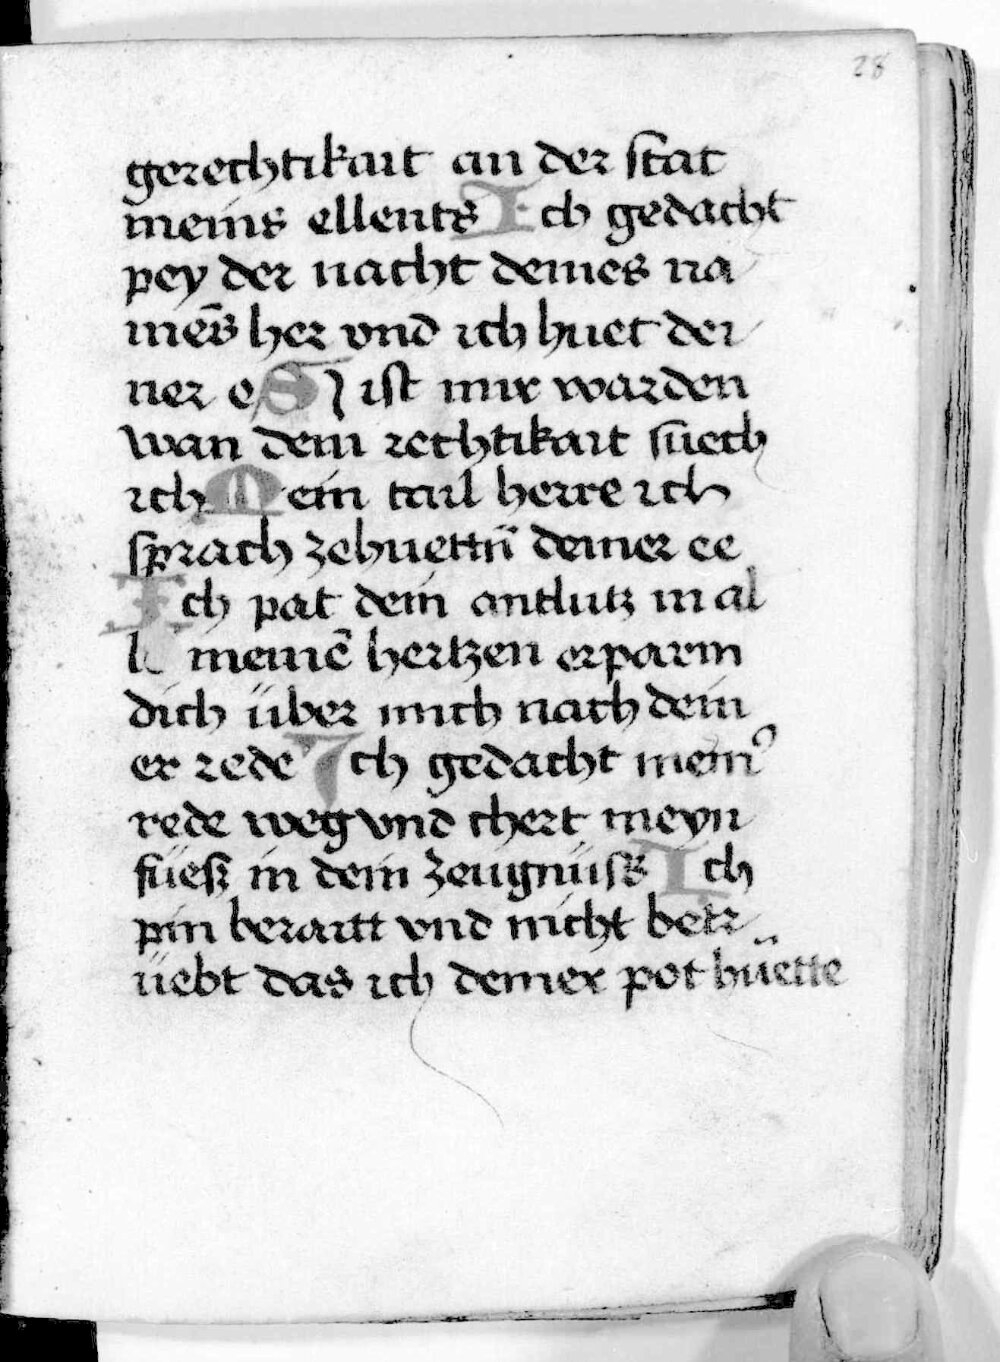 28
gerechtikait an der stat
meins ellents Ich gedacht
pey der nacht deines na
mēs her vnd ich huet dei
ner e Sy ist mir warden
wan dein rechtikait sūech
ich Mein tail herre ich
sprach zehuettn̄ deiner ee
Ich pat dein antlutz in al
l meinē hertzen erparm
dich über mich nach dein
er rede Ich gedacht mein⁹
rede weg vnd chert meyn
füesz in dein zeugnüsß Ich
pin beraitt vnd nicht betr
üebt das ich deiner pot hüette